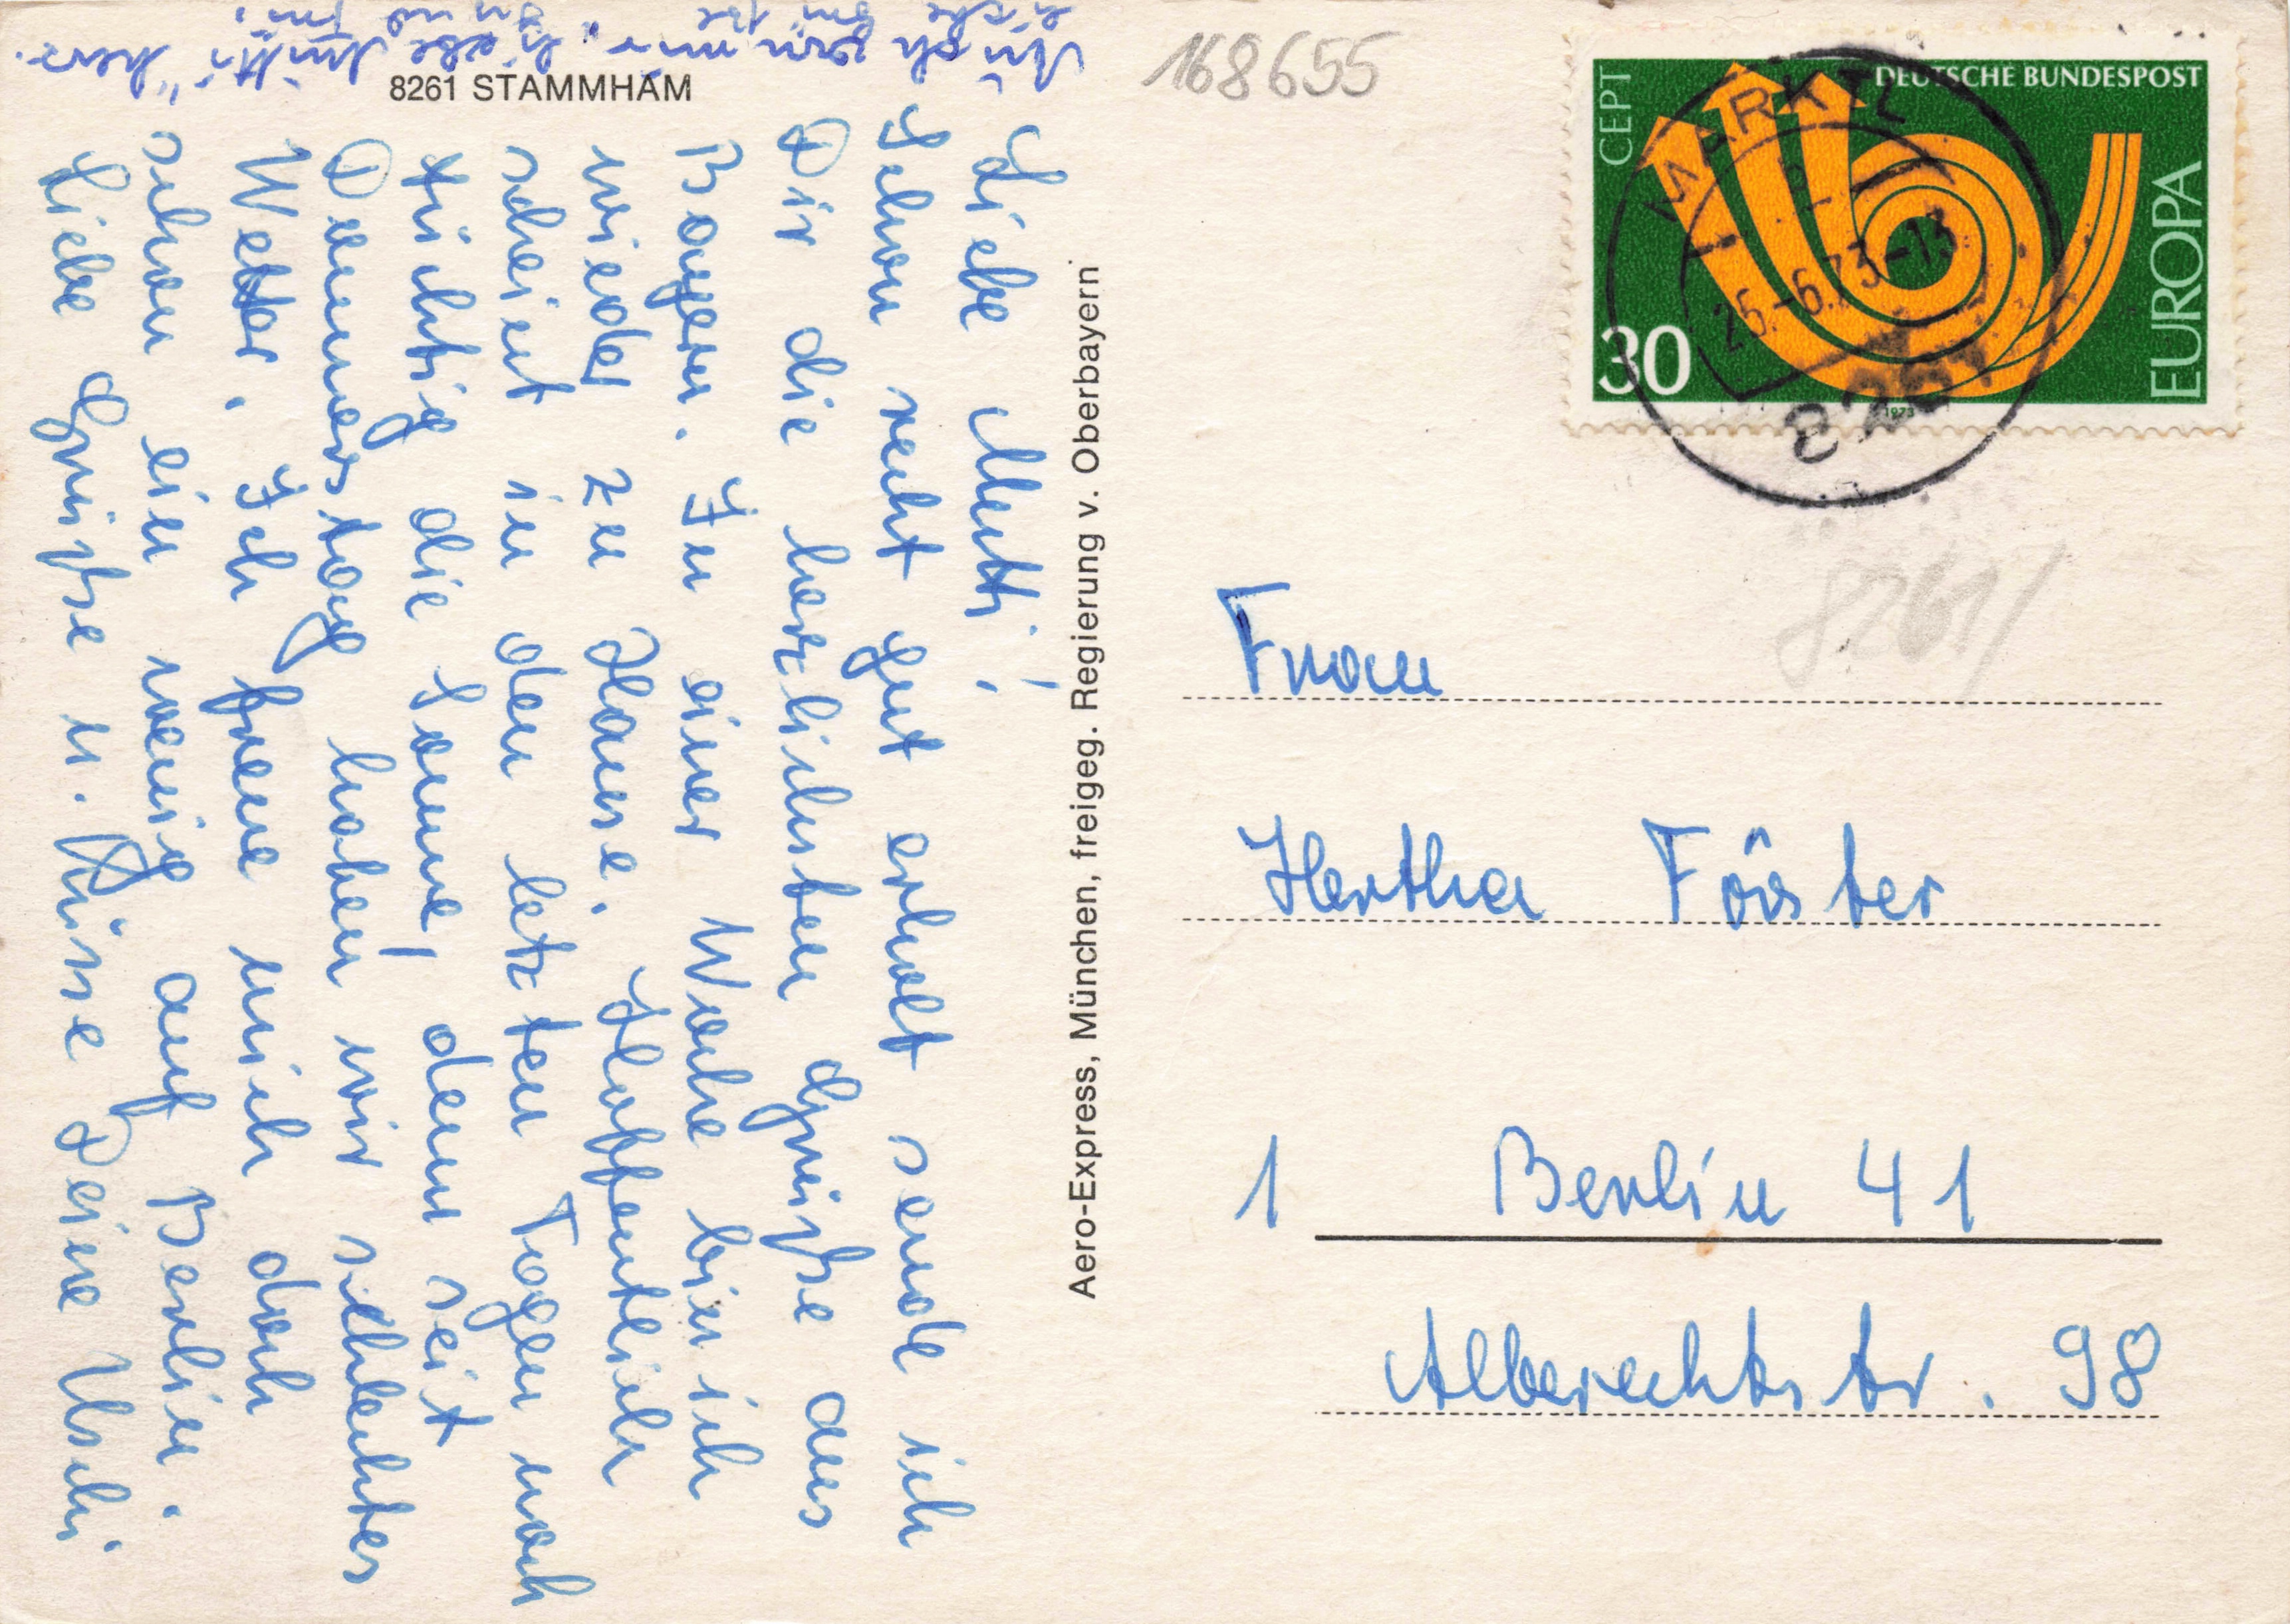 8261 STAMMHAM
Liebe Mutti!
Schon recht gut erholt sende ich
Dir die herzlichsten Grüße aus
Bayern. In einer Woche bin ich
wieder zu Hause. Hoffentlich
scheint in den letzten Tagen noch
tüchtig die Sonne, denn seit
Donnerstag haben wir schlechtes
Wetter. Ich freue mich doch
schon ein wenig auf Berlin.
Liebe Grüße u. Küsse Deine Uschi
Auch von mir, liebe Mutti, herz-
liche
Aero-Express, München, freigeg. Regierung v. Oberbayern
168655
CEPT
DEUTSCHE BUNDESPOST
EUROPA
30
1973
MARKTL
25.-6.73-13
8261
8261/
Frau
Hertha Förster
1 Berlin 41
Alberechtstr. 98